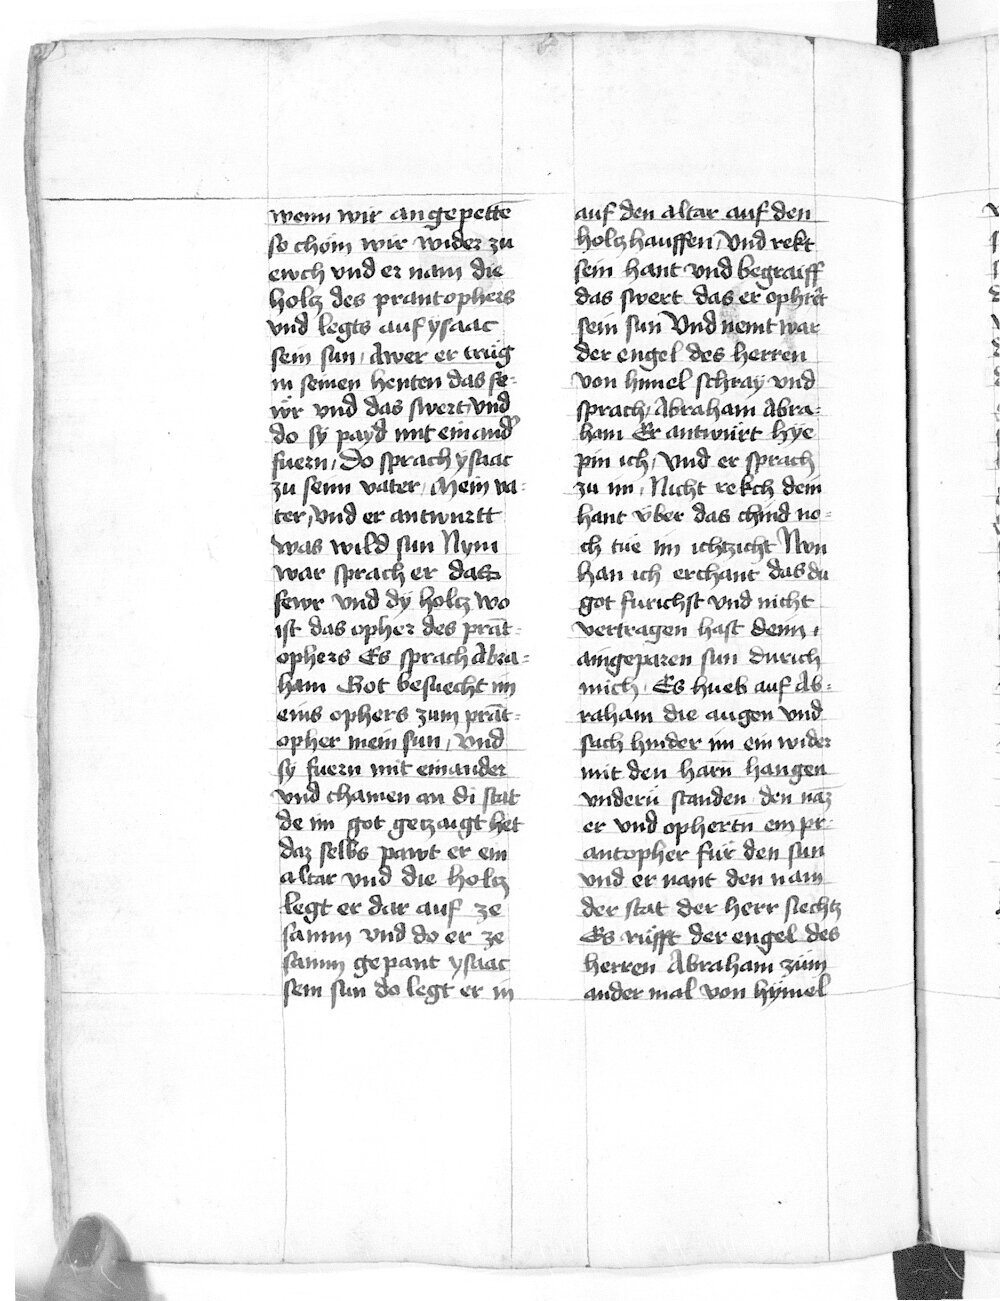 wenn wir angepettē
so chöm wir wider zu
ewch vnd er nam die
holcz des prantophers
vnd legts auf ysaac
sein sun / Awer er trůg
in seinen henten das fe-
wr vnd das swert / vnd
do sÿ payd mit einand
fuern / Do sprach ysaac
zu seim vater / Mein va-
ter / Vnd er antwurtt
was wild sun Nym
war sprach er das
fewr vnd dÿ holcz wo
ist das opher des prāt-
ophers Es sprach Abra-
ham Got besuecht im
eins ophers zum prāt-
opher mein sun / Vnd
sÿ fuern mit einander
vnd chamen an di stat
de im got geczaigt het
daz selbs pawt er ein
altar vnd die holcz
legt er dar auf ze
samm vnd do er ze
samm gepant ysaac
sein sun do legt er in
auf den altar auf den
holczhauffen / Vnd rekt
sein hant vnd begraiff
das swert das er ophrēt
sein sun Vnd nemt war
der engel des herren
von himel schray vnd
sprach / Abraham Abra-
ham Er antwůrt hye
pin ich / Vnd er sprach
zu im / Nicht rekch dein
hant vber das chind no-
ch tue im ichtzicht Nvn
han ich erchant das du
got furichst vnd nicht
vertragen hast deim
aingeparen sun durich
mich / Es hueb auf Ab-
raham die augen vnd
sach hinder im ein wider
mit den harn hangen
vndern standen den naz
er vnd ophertn ein pr-
antopher für den sun
vnd er nant den nam
der stat der herr siechtz
Es rüfft der engel des
herren Abraham züm
ander mal von hÿmel